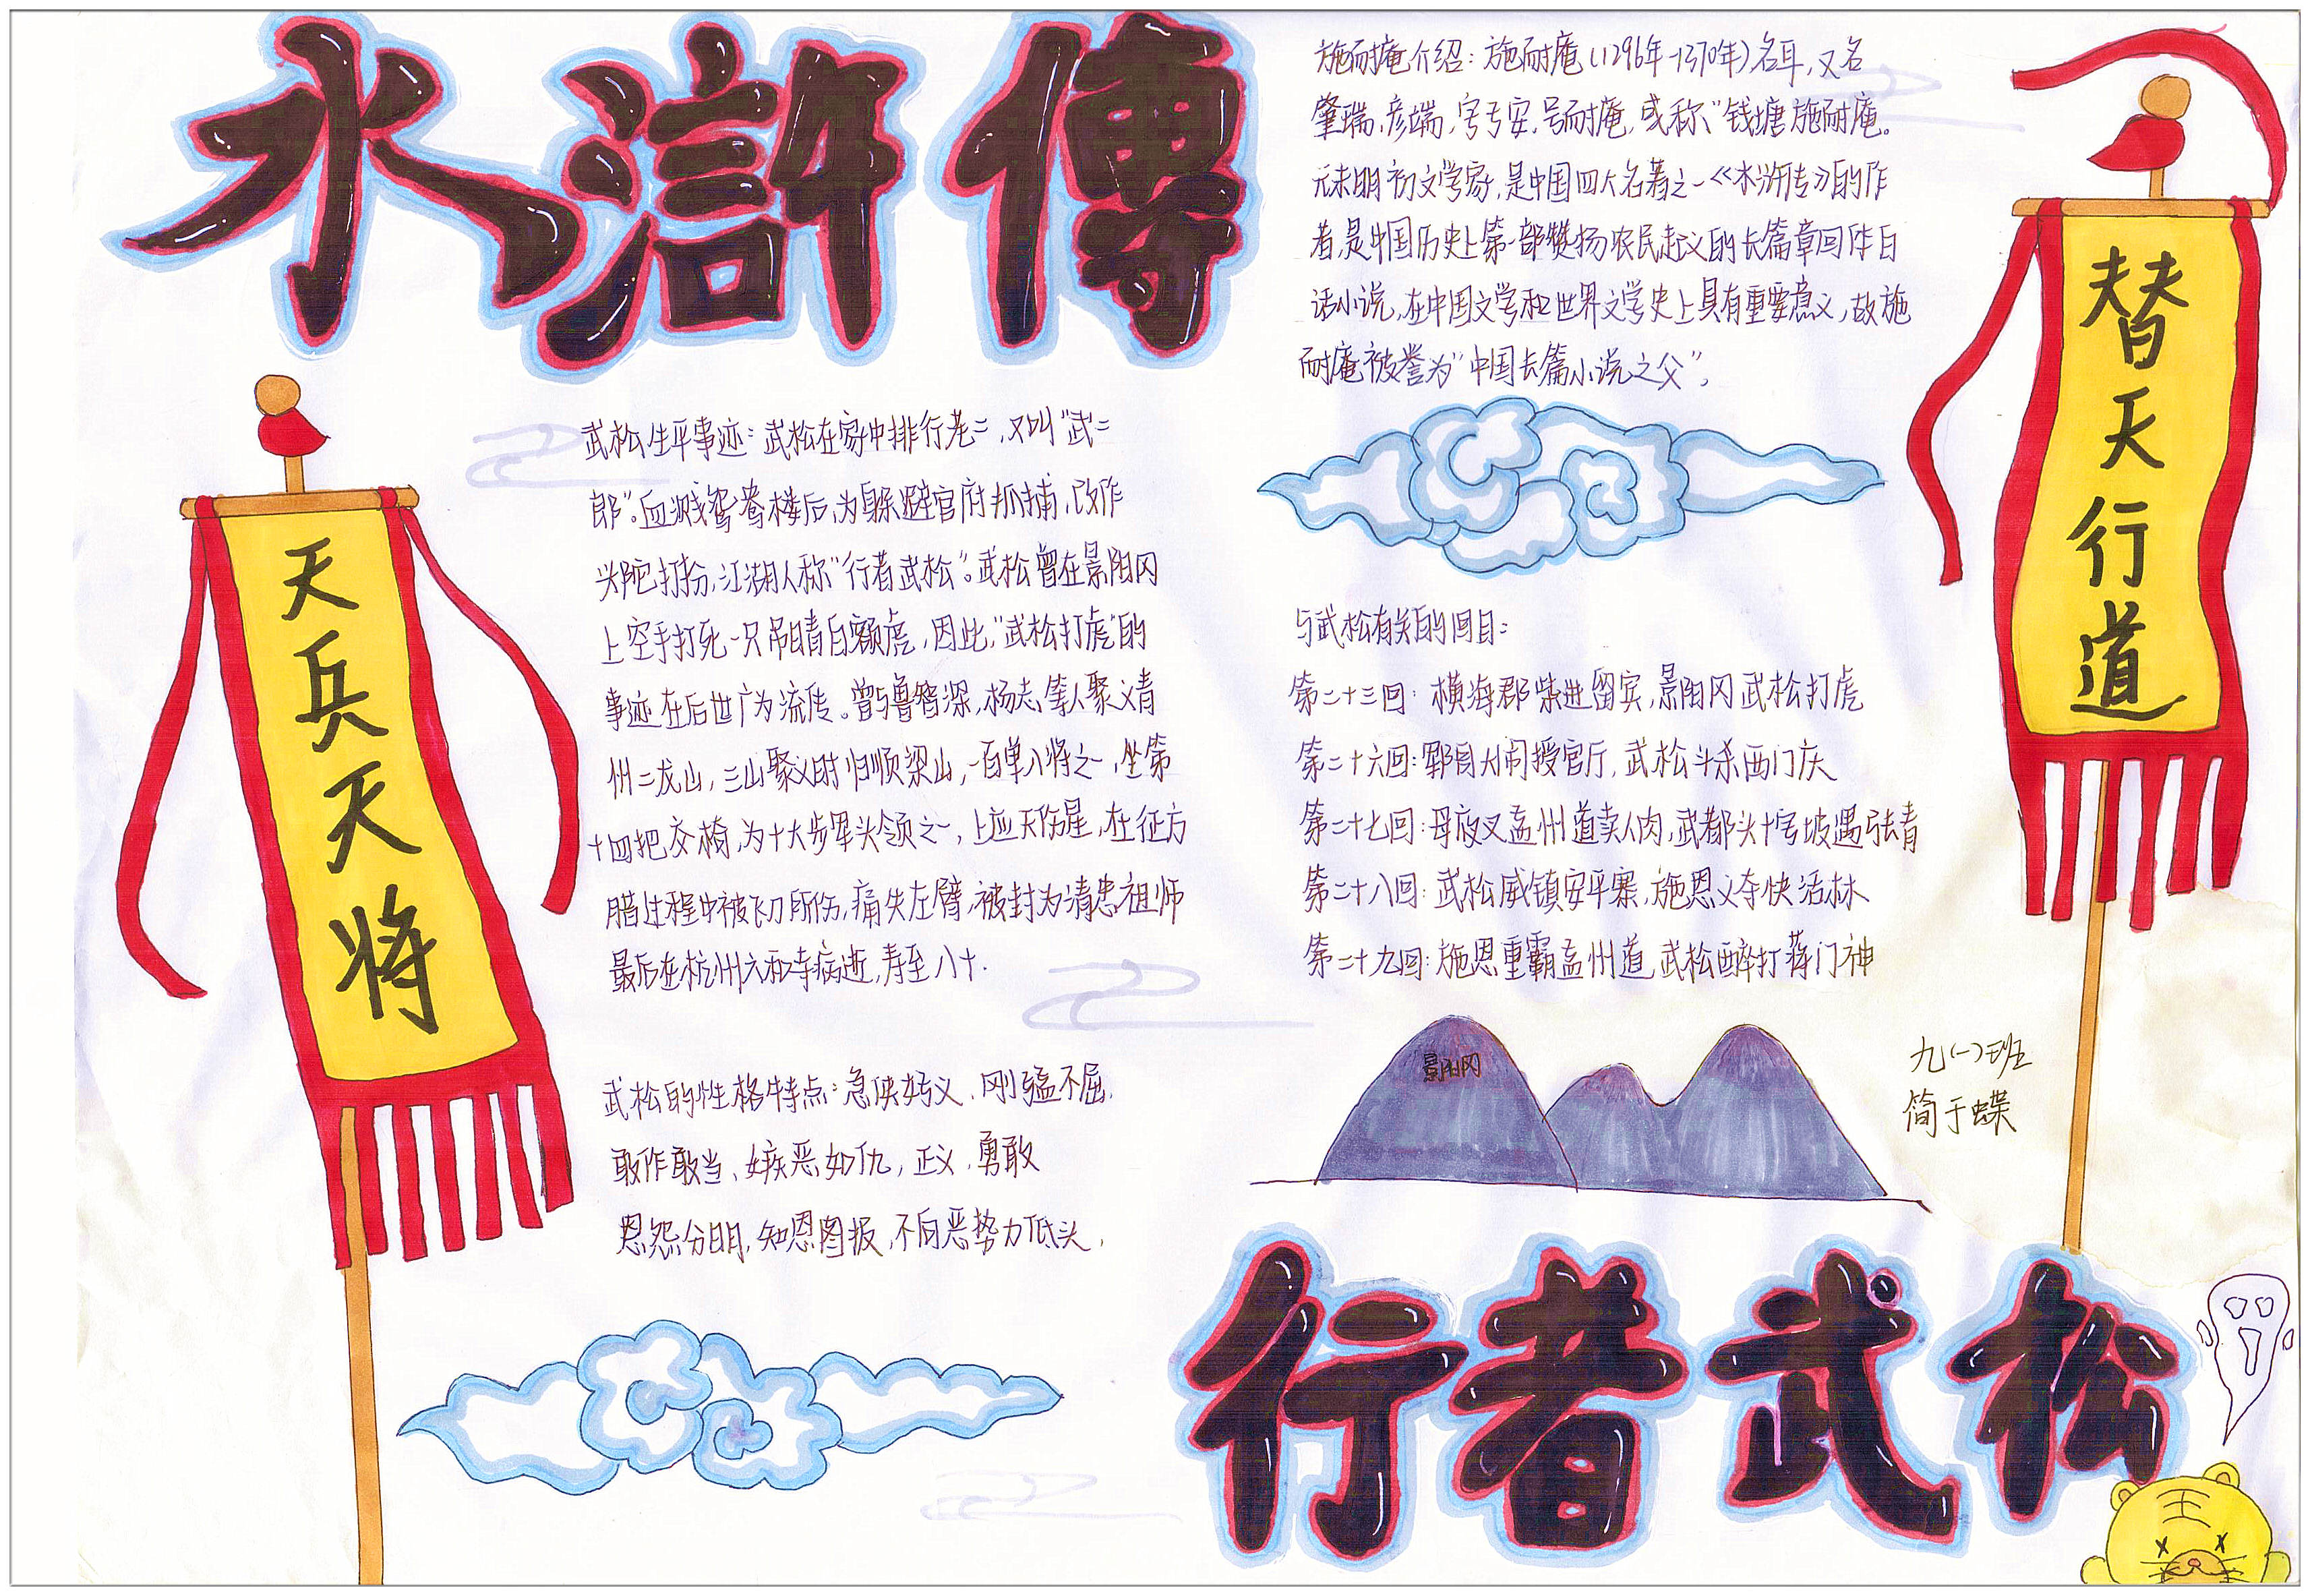 水滸傳
施耐庵介绍：施耐庵（1296年-1370年）,名耳，又名
肇瑞，彦端，字子安，号耐庵，或称“钱塘施耐庵。
元末明初文学家，是中国四大名著之一《水浒传》的作
者，是中国历史上第一部赞扬农民起义的长篇章回体白
话小说，在中国文学和世界文学史上具有重要意义，故施
耐庵被誉为“中国长篇小说之父”，
替天行道
天兵天将
武松生平事迹：武松在家中排行老二，又叫“武二
郎”。血溅鸳鸯楼后，为躲避官府抓捕，改作
头陀打扮，江湖人称“行者武松”。武松曾在景阳冈
上空手打死一只吊睛白额虎，因此，“武松打虎”的
事迹在后世广为流传。曾与鲁智深，杨志，等人聚义青
州二龙山，三山聚义时归顺梁山，一百单八将之一，坐第
十四把交椅，为十大步军头领之一，上应天伤星，在征方
腊过程中被飞刀所伤，痛失左臂，被封为清忠祖师
最后在杭州六和寺病逝，寿至八十.
武松的性格特点：急侠好义、刚猛不屈，
敢作敢当、嫉恶如仇，正义，勇敢
恩怨分明，知恩图报，不向恶势力低头，
与武松有关的回目：
第二十三回：横海郡柴进留宾，景阳冈武松打虎
第二十六回：郓哥大闹授官厅，武松斗杀西门庆
第二十七回：母夜叉孟州道卖人肉，武都头十字坡遇张青
第二十八回：武松威镇安平寨，施恩义夺快活林
第二十九回：施恩重霸孟州道，武松醉打蒋门神
景阳冈
九(一)班
简于蝶
行者武松
王